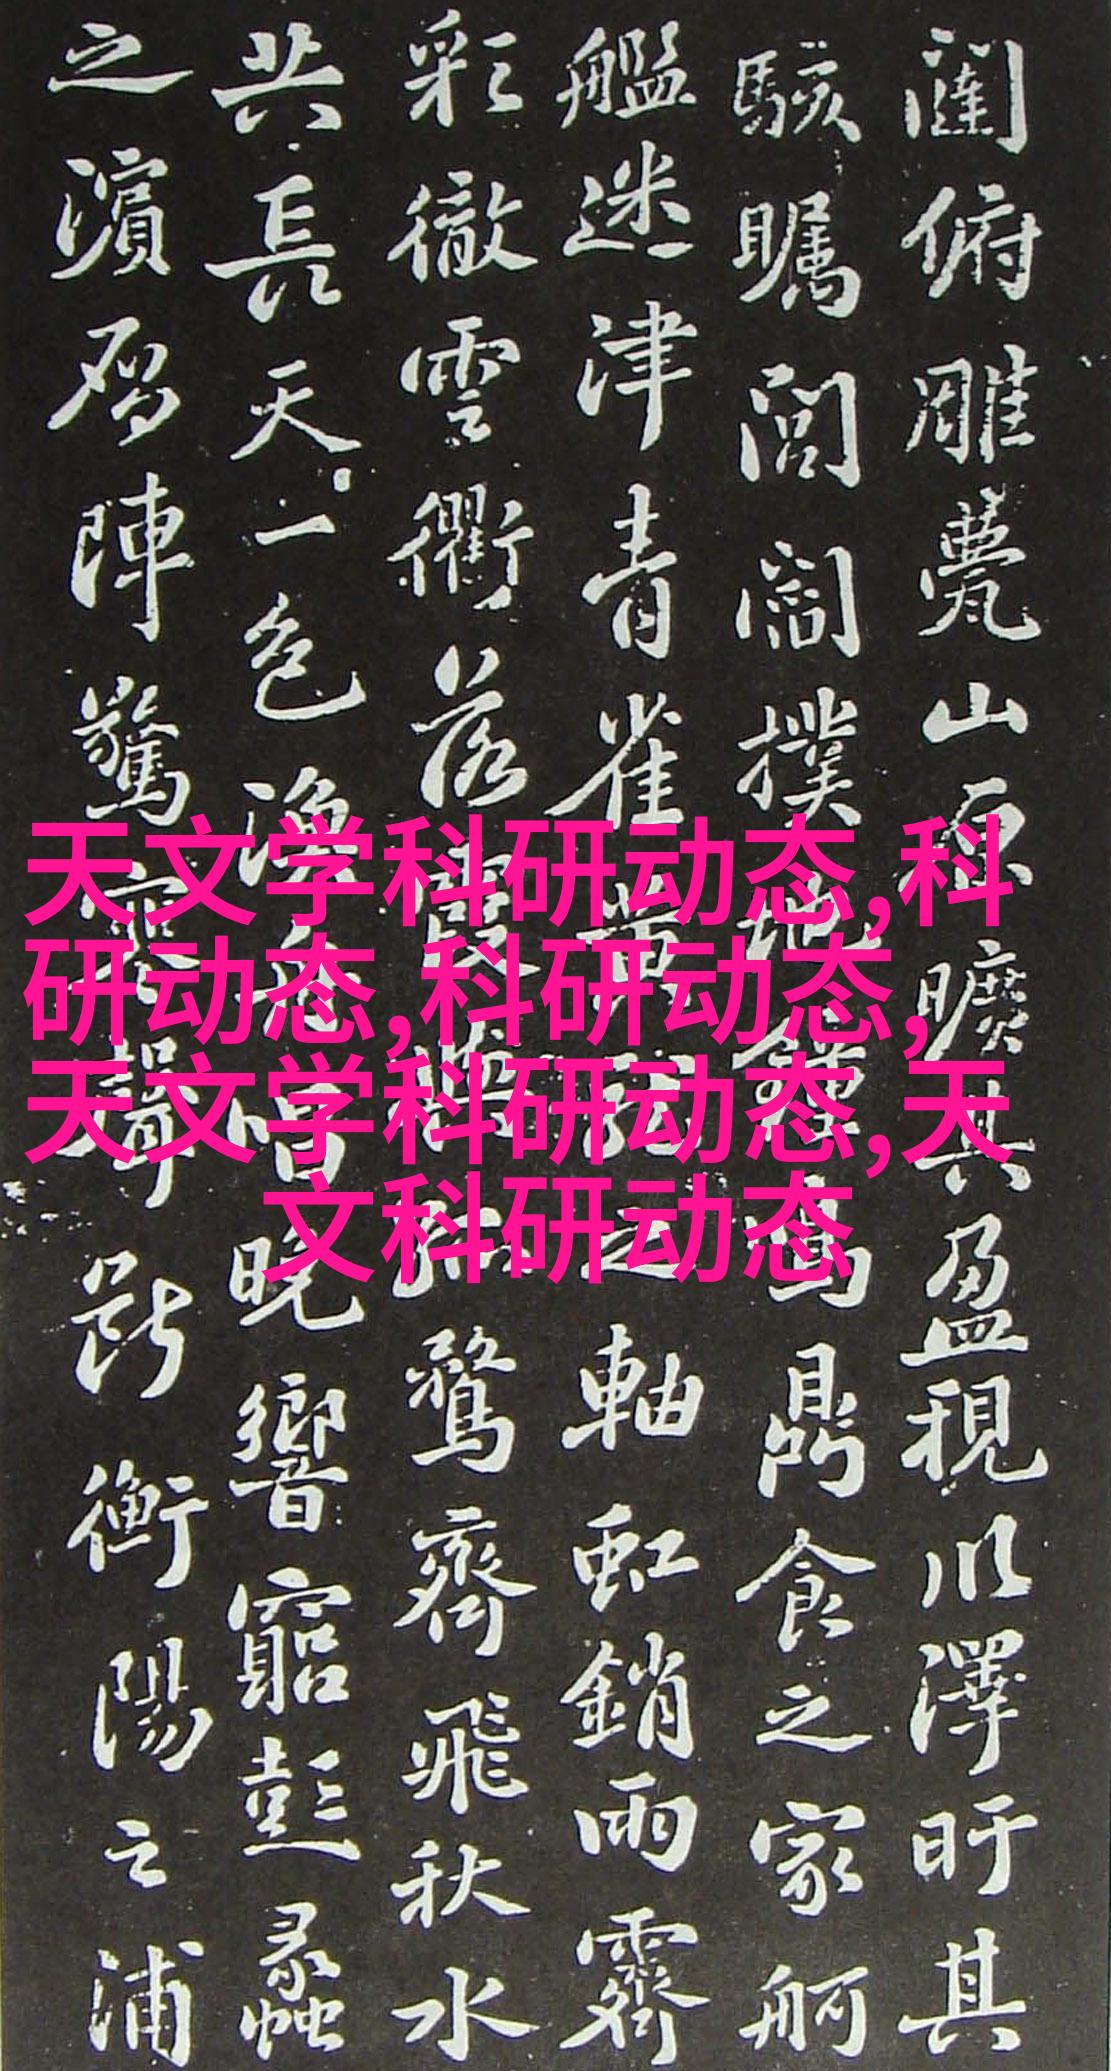 闥俯雕甍山原曠其盈視川澤盱其
駭矚閭閻撲地鐘鳴鼎食之家舸
艦迷津青雀黃龍之軸虹銷雨霽
彩徹雲衢落霞與孤鶩齊飛秋水
共長天一色漁舟唱晚響窮彭蠡
之濱雁陣驚寒聲斷衡陽之浦
天文学科研动态,科
研动态,科研动态,
天文学科研动态,天
文科研动态